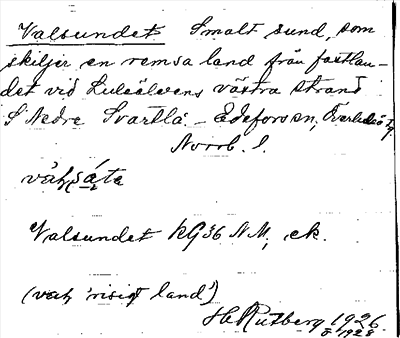 Valsundet Smalt sund, som
skiljer en remsa land från fastlan-
det vid Luleälvens västra strand
S Nedre Svartlå. - Edeforsen, Överluleå tg.
Norrb. l.
Valsundet kG36 NM, ek.
(vaħ 'risigt land')
H Rutberg 1926.
1928